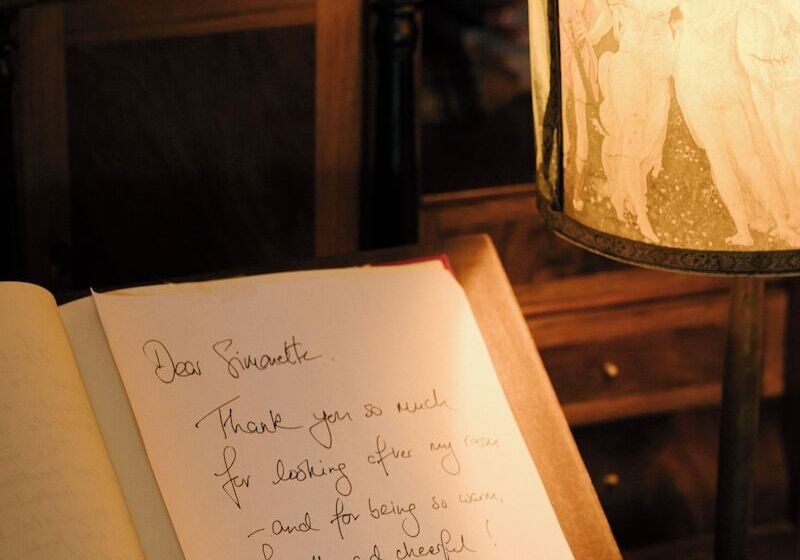 Dear Simonetta.
Thank you so much
for looking after my room
- and for being so warm,
and cheerful!